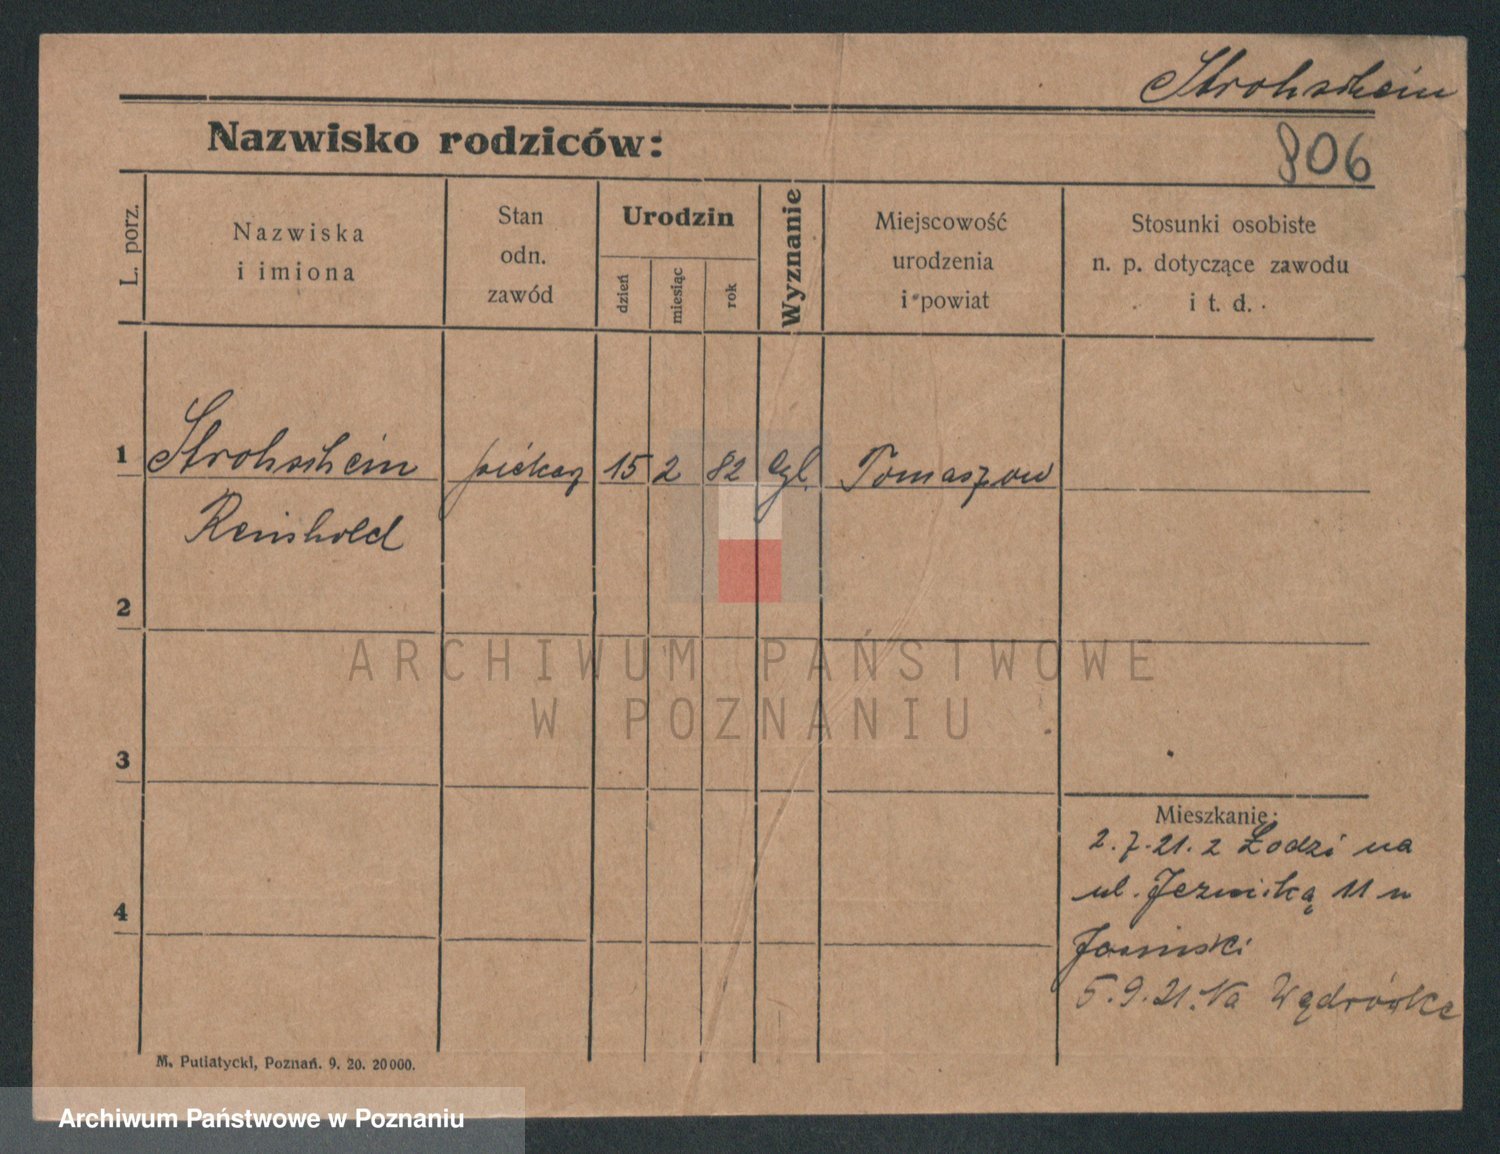 Strohschein
Nazwisko rodziców:
806
L. porz.
Nazwiska
i imiona
Stan
odn.
zawód
Urodzin
dzień
miesiąc
rok
Wyznanie
Miejscowość
urodzenia
i powiat
Stosunki osobiste
n. p. dotyczące zawodu
i t. d.
1 Strohschein piekarz 15 2 82 Egl. Tomaszow
Reinhold
2
ARCHIWUM PAŃSTWOWE
W POZNANIU
3
Mieszkanie:
2.7.21. z Łodzi na
ul. 11 u
Jasinski
4
5.9.21. Na Wędrówkę
M. Putiatycki, Poznań. 9. 20. 20000.
Archiwum Państwowe w Poznaniu